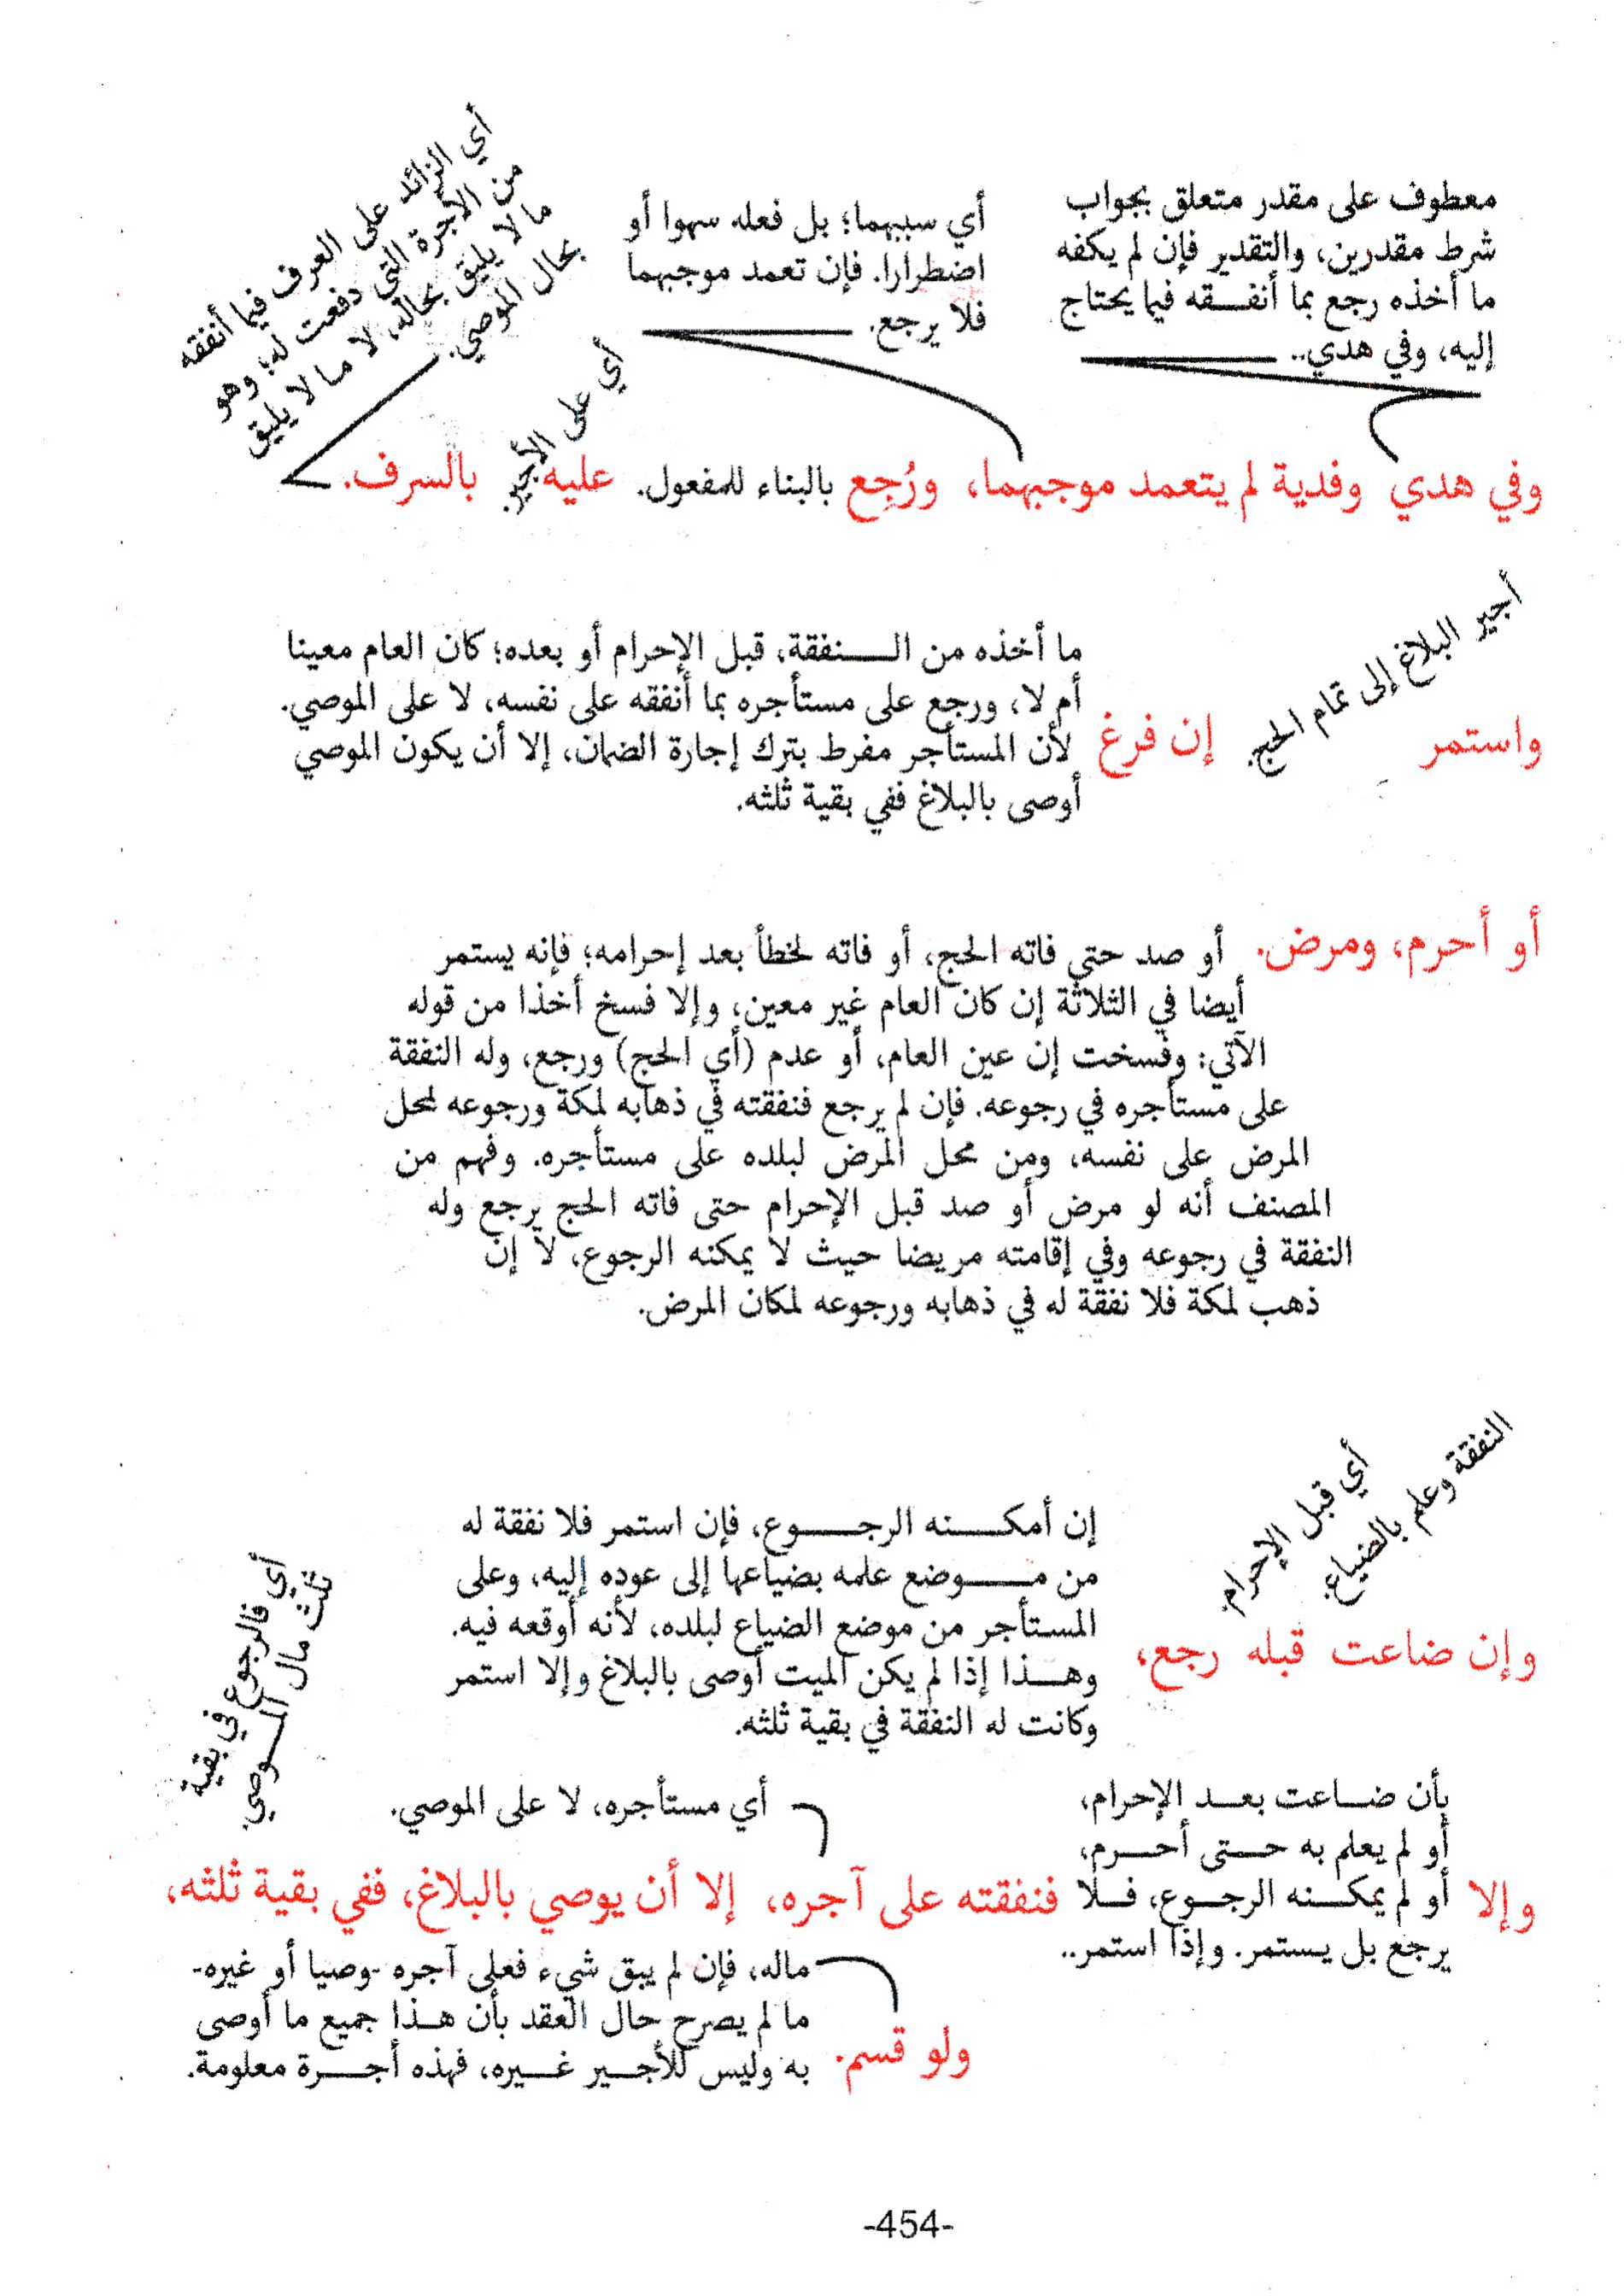 معطوف على مقدر متعلق بجواب
شرط مقدرين، والتقدير فإن لم يكفه
ما أخذه رجع بما أنفـــقه فيما يحتاج
إليه، وفي هدي..
أي سببهما؛ بل فعله سهوا أو
اضطرارا. فإن تعمد موجبهما
فلا يرجع.
أي الزائد على العرف فيما أنفقه
من الأجرة التي دفعت له؛ وهو
ما لا يليق بحاله، لا ما لا يليق
بحال الموصي.
أي على الأجير.
وفي هدي وفدية لم يتعمد موجبهما، ورُجِع بالبناء للمفعول. عليه بالسرف.
أجير البلاغ إلى تمام الحج.
ما أخذه من الـــــنفقة، قبل الإحرام أو بعده؛ كان العام معينا
أم لا، ورجع على مستأجره بما أنفقه على نفسه، لا على الموصي.
واستمر إن فرغ لأن المستأجر مفرط بترك إجارة الضمان، إلا أن يكون الموصي
أوصى بالبلاغ ففي بقية ثلثه.
أو أحرم، ومرض. أو صد حتى فاته الحج، أو فاته لخطأ بعد إحرامه؛ فإنه يستمر
أيضا في الثلاثة إن كان العام غير معين، وإلا فسخ أخذا من قوله
الآتي: وفسخت إن عين العام، أو عدم (أي الحج) ورجع، وله النفقة
على مستأجره في رجوعه. فإن لم يرجع فنفقته في ذهابه لمكة ورجوعه لمحل
المرض على نفسه، ومن محل المرض لبلده على مستأجره. وفهم من
المصنف أنه لو مرض أو صد قبل الإحرام حتى فاته الحج يرجع وله
النفقة في رجوعه وفي إقامته مريضا حيث لا يمكنه الرجوع، لا إن
ذهب لمكة فلا نفقة له في ذهابه ورجوعه لمكان المرض.
النفقة وعلم بالضياع.
أي قبل الإحرام.
إن أمكـــــنه الرجـــــوع، فإن استمر فلا نفقة له
من مـــــوضع علمه بضياعها إلى عوده إليه، وعلى
المستأجر من موضع الضياع لبلده، لأنه أوقعه فيه.
وإن ضاعت قبله رجع، وهـــذا إذا لم يكن الميت أوصى بالبلاغ وإلا استمر
وكانت له النفقة في بقية ثلثه.
أي فالرجوع في بقية
ثلث مال المـــوصي.
أي مستأجره، لا على الموصي.
بأن ضـــاعت بعـــد الإحرام،
أو لم يعلم به حـــتى أحـــرم،
وإلا أو لم يمكـــنه الرجـــوع، فـــلا فنفقته على آجره، إلا أن يوصي بالبلاغ، ففي بقية ثلثه،
يرجع بل يستمر. وإذا استمر..
ماله، فإن لم يبق شيء فعلى آجره -وصيا أو غيره-
ما لم يصرح حال العقد بأن هـــذا جميع ما أوصى
ولو قسم. به وليس للأجـــير غـــيره، فهذه أجـــرة معلومة.
-454-